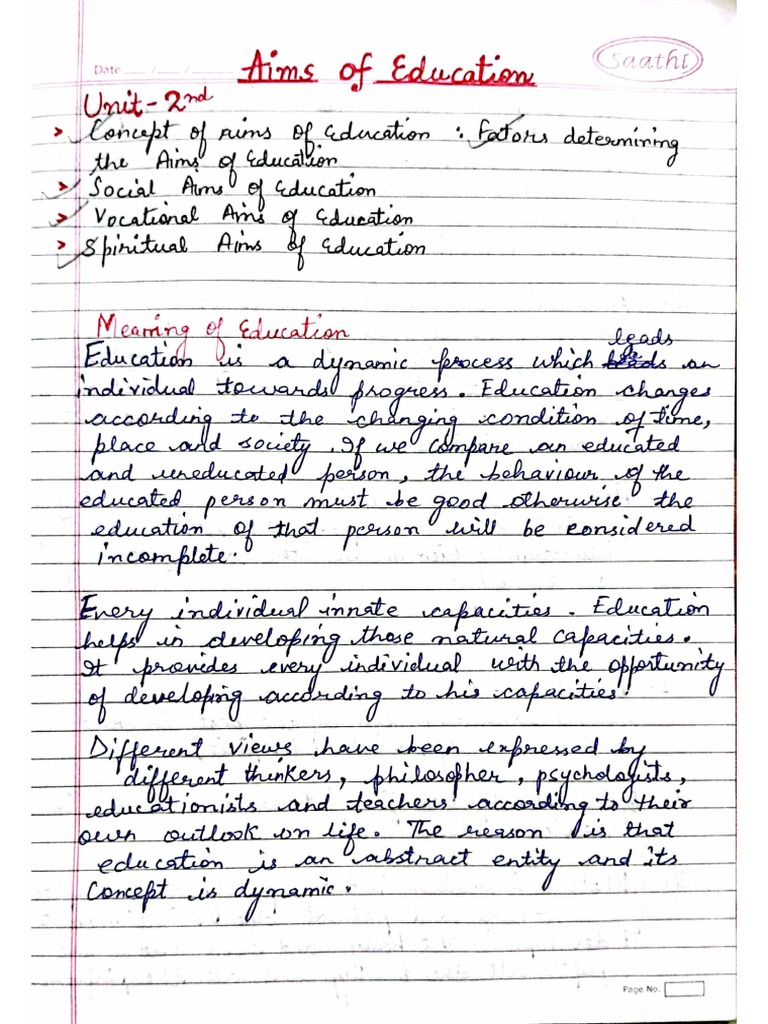 Date ___/___/___
Aims of Education
Saathi
Unit-2nd
> Concept of Aims of Education : Factors determining
the Aims of Education
> Social Aims of Education
> Vocational Aims of Education
> Spiritual Aims of Education
Meaning of Education
leads
Education is a dynamic process which an
individual towards progress. Education changes
according to the changing condition of time,
place and society. If we compare an educated
and uneducated person, the behaviour of the
educated person must be good otherwise the
education of that person will be considered
incomplete.
Every individual innate capacities. Education
helps in developing those natural capacities.
It provides every individual with the opportunity
of developing according to his capacities.
Different views have been expressed by
different thinkers, philosopher, psychologists,
educationists and teachers according to their
own outlook on life. The reason is that
education is an abstract entity and its
Concept is dynamic.
Page No.